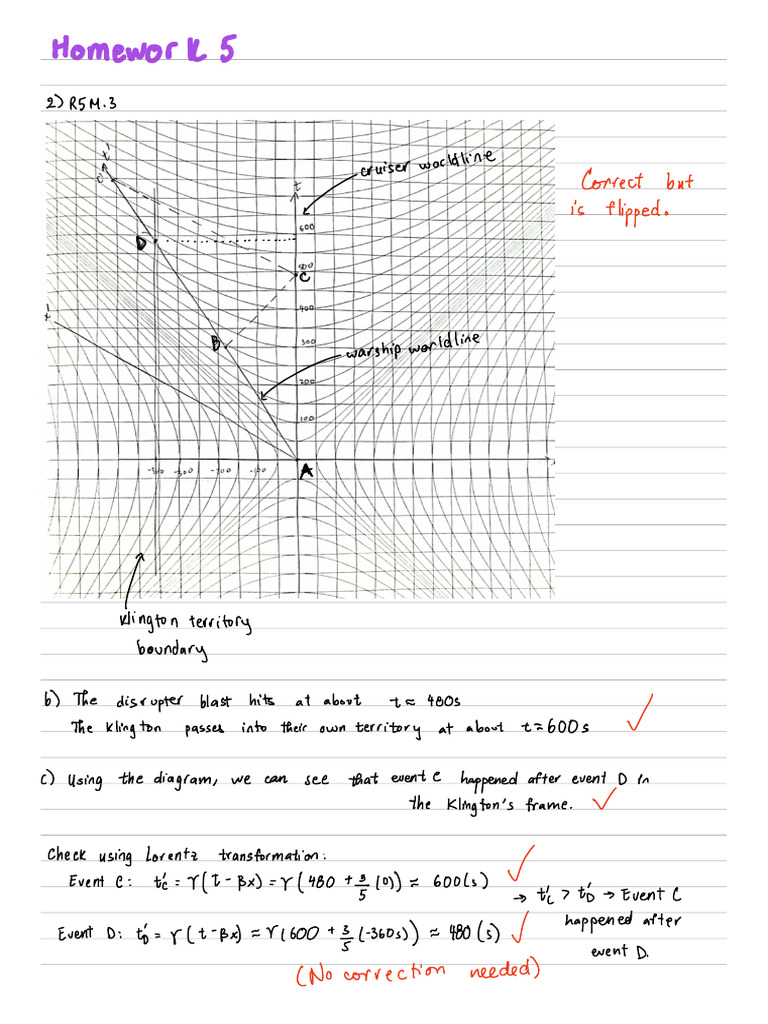 Homework 5
2) R5M.3
Correct but
is flipped.
cruiser worldline
t'
t
C'
600
D
500
C
400
x'
B
300
warship worldline
200
100
-300
-200
-100
A
Klington territory
boundary
b) The disrupter blast hits at about t ≈ 480s
The Klington passes into their own territory at about t ≈ 600s ✓
c) Using the diagram, we can see that event C happened after event D in
the Klington's frame. ✓
Check using Lorentz transformation:
Event C: t'_C = γ(t - βx) = γ(480 + 3/5 (0)) ≈ 600(s) ✓
→ t'_C > t'_D → Event C
happened after
event D.
Event D: t'_D = γ(t - βx) ≈ γ(600 + 3/5 (-360s)) ≈ 480(s) ✓
(No correction needed)